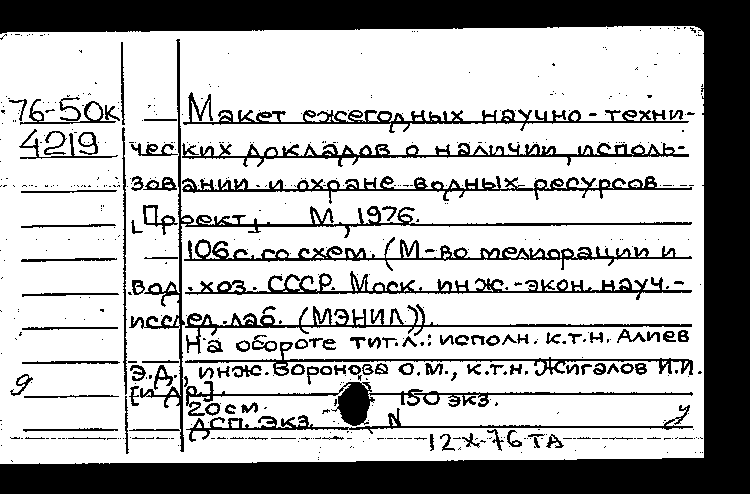 76-50к Макет ежегодных научно-техни-
4219 ческих докладов о наличии, исполь-
зовании и охране водных ресурсов
[Проект]. М., 1976.
106с. со схем. (М-во мелиорации и
вод. хоз. СССР. Моск. инж.-экон. науч.-
исслед. лаб. (МЭНИЛ)).
На обороте тит.л.: исполн. к.т.н. Алиев
Э.Д., инж. Воронова О.М., к.т.н. Жигалов И.И.
g [и др.].
20см. 150 экз.
ДСП. экз. N у
12 X-76 ТА